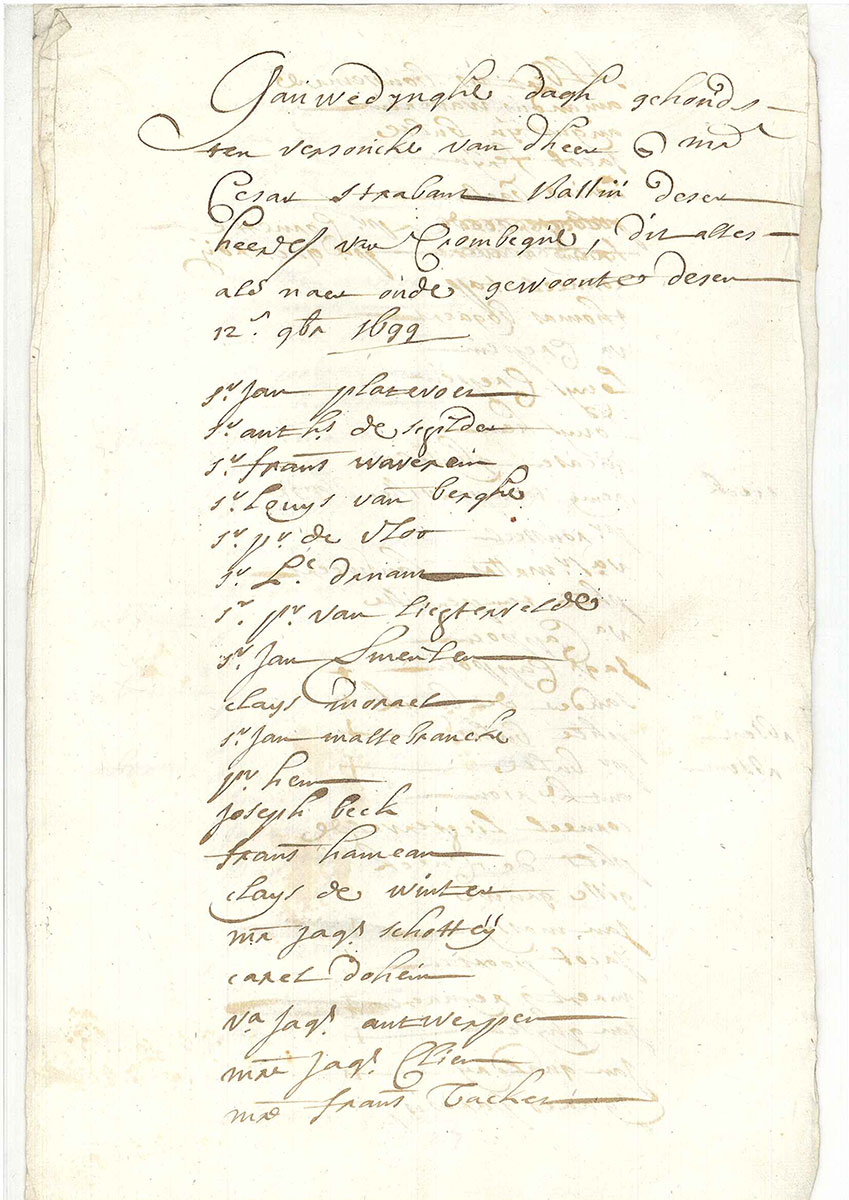 Gauwedynghe dagh gehouds
ten versoucke van dheer Mr
Cesar Strabant Balliu deser
heerels van Crombeque, dit alles
als naer oude gewoonte desen
12n 9br 1699
sr Jan platevoet
sr anths de schilder
sr frans waverein
sr Louys van berghe
sr pr de vloo
sr
sr pr van Liegtervelde
sr Jan Smeulen
clays morael
sr Jan mallebrancke
pr hen
Joseph beck
frans hameau
clays de winter
mr Jaqs schottey
carel dohein
va Jaqs antwerpen
mre Jaqs Clien
mre frans Tacher